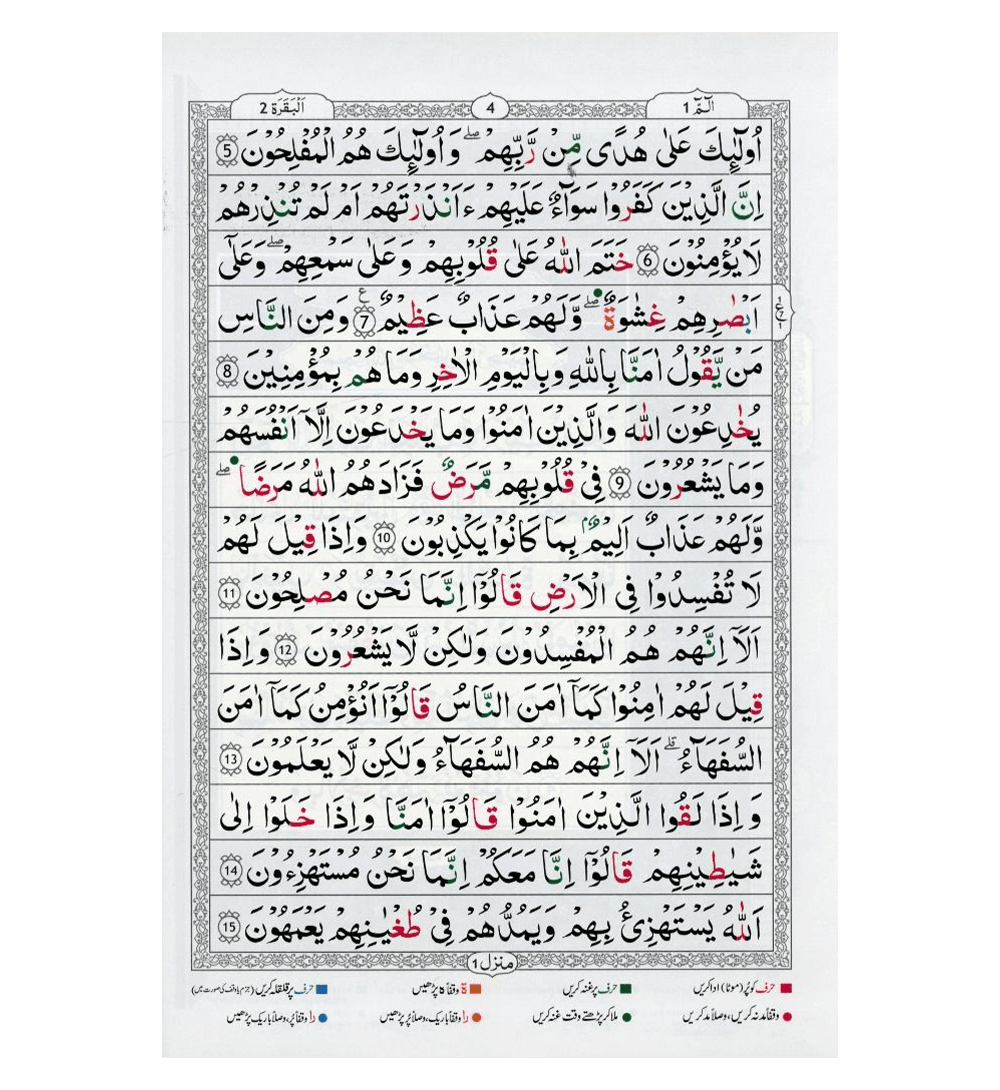 الٓمّٓ 1
4
اَلْبَقَرَة 2
اُولٰٓئِكَ عَلٰی هُدًی مِّنْ رَّبِّهِمْ ۖ وَ اُولٰٓئِكَ هُمُ الْمُفْلِحُوْنَ 5
اِنَّ الَّذِیْنَ كَفَرُوْا سَوَآءٌ عَلَیْهِمْ ءَاَنْذَرْتَهُمْ اَمْ لَمْ تُنْذِرْهُمْ
لَا یُؤْمِنُوْنَ 6 خَتَمَ اللّٰهُ عَلٰی قُلُوْبِهِمْ وَعَلٰی سَمْعِهِمْ ۖ وَعَلٰۤی
اَبْصَارِهِمْ غِشٰوَةٌ ۖ وَّلَهُمْ عَذَابٌ عَظِیْمٌ 7 ع وَمِنَ النَّاسِ
مَنْ یَّقُوْلُ اٰمَنَّا بِاللّٰهِ وَبِالْیَوْمِ الْاٰخِرِ وَمَا هُمْ بِمُؤْمِنِیْنَ 8
یُخٰدِعُوْنَ اللّٰهَ وَالَّذِیْنَ اٰمَنُوْا وَمَا یَخْدَعُوْنَ اِلَّاۤ اَنْفُسَهُمْ
وَمَا یَشْعُرُوْنَ 9 فِیْ قُلُوْبِهِمْ مَّرَضٌ فَزَادَهُمُ اللّٰهُ مَرَضًا ۖ
وَّلَهُمْ عَذَابٌ اَلِیْمٌ بِمَا كَانُوْا یَكْذِبُوْنَ 10 وَاِذَا قِیْلَ لَهُمْ
لَا تُفْسِدُوْا فِی الْاَرْضِ قَالُوْۤا اِنَّمَا نَحْنُ مُصْلِحُوْنَ 11
اَلَاۤ اِنَّهُمْ هُمُ الْمُفْسِدُوْنَ وَلٰكِنْ لَّا یَشْعُرُوْنَ 12 وَاِذَا
قِیْلَ لَهُمْ اٰمِنُوْا كَمَاۤ اٰمَنَ النَّاسُ قَالُوْۤا اَنُؤْمِنُ كَمَاۤ اٰمَنَ
السُّفَهَآءُ ۗ اَلَاۤ اِنَّهُمْ هُمُ السُّفَهَآءُ وَلٰكِنْ لَّا یَعْلَمُوْنَ 13
وَاِذَا لَقُوا الَّذِیْنَ اٰمَنُوْا قَالُوْۤا اٰمَنَّا وَاِذَا خَلَوْا اِلٰی
شَیٰطِیْنِهِمْ قَالُوْۤا اِنَّا مَعَكُمْ اِنَّمَا نَحْنُ مُسْتَهْزِءُوْنَ 14
اَللّٰهُ یَسْتَهْزِئُ بِهِمْ وَیَمُدُّهُمْ فِیْ طُغْیٰنِهِمْ یَعْمَهُوْنَ 15
منزل 1
حرف کو پُر (موٹا) ادا کریں حرف پر غنہ کریں ة وقفاً ہ پڑھیں حرف پر قلقلہ کریں (جزم یا وقف کی صورت میں)
وقفاً مد نہ کریں، وصلاً مد کریں ملا کر پڑھتے وقت غنہ کریں را وقفاً باریک، وصلاً پُر پڑھیں را وقفاً پُر، وصلاً باریک پڑھیں